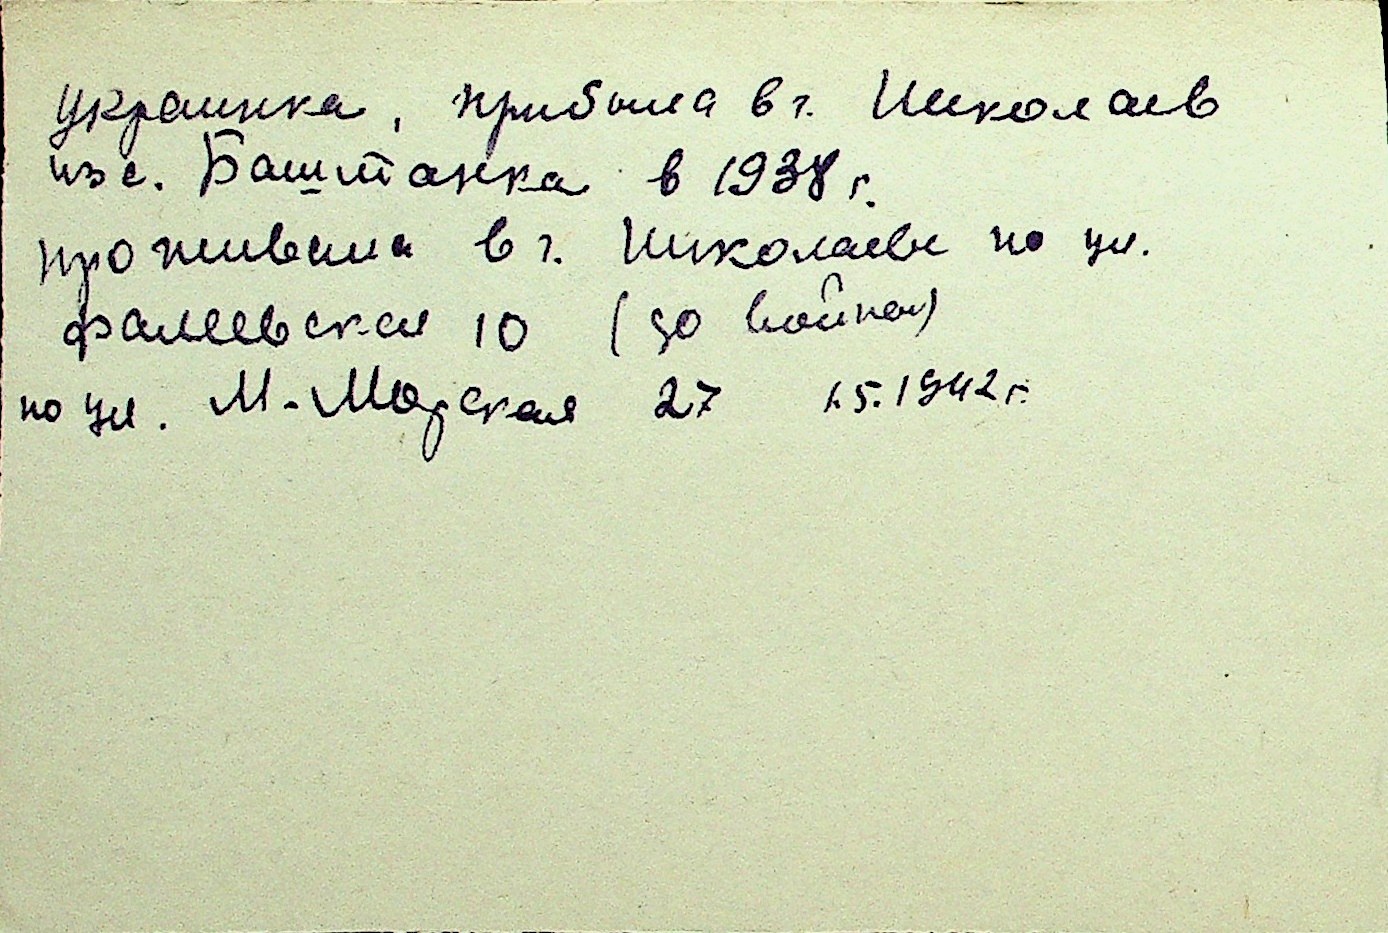 украинка, прибыла в г. Николаев
из с. Баштанка в 1938 г.
проживала в г. Николаеве по ул.
Фалеевская 10 (до войны)
по ул. М-Морская 27 1.5.1942 г.